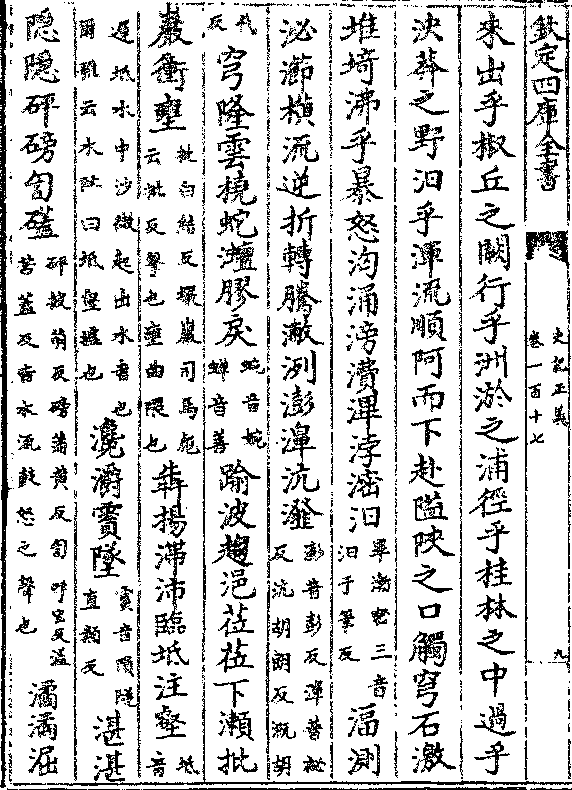 欽定四庫全書
史記正義
卷一百十七
九
來出乎椒丘之闕行乎洲淤之浦徑乎桂林之中過乎
泱莽之野汩乎渾流順阿而下赴隘陜之口觸穹石激
堆埼沸乎暴怒洶涌滂㵒滭浡滵汩畢渤密三音汩于筆反湢測
泌瀄橫流逆折轉騰潎洌澎濞沆瀣澎音彭反濞普祕反沆胡朗反瀣胡
代反穹隆雲橈蛇灗膠戾蛇音婉蟬音善踰波趨浥莅莅下瀨批
巖衝壅批白結反壧巖司馬彪云批反擊也壅曲隈也犇揚滯沛臨坻注壑坻音
遲坻水中沙微起出水者也爾雅云水阯曰坻壑壚也瀺灂霣墜霣音隕隧直類反湛湛
隱隱砰磅訇礚砰披萌反磅蒲黄反訇呼宏反礚苦蓋反皆水流鼓怒之聲也潏潏淈